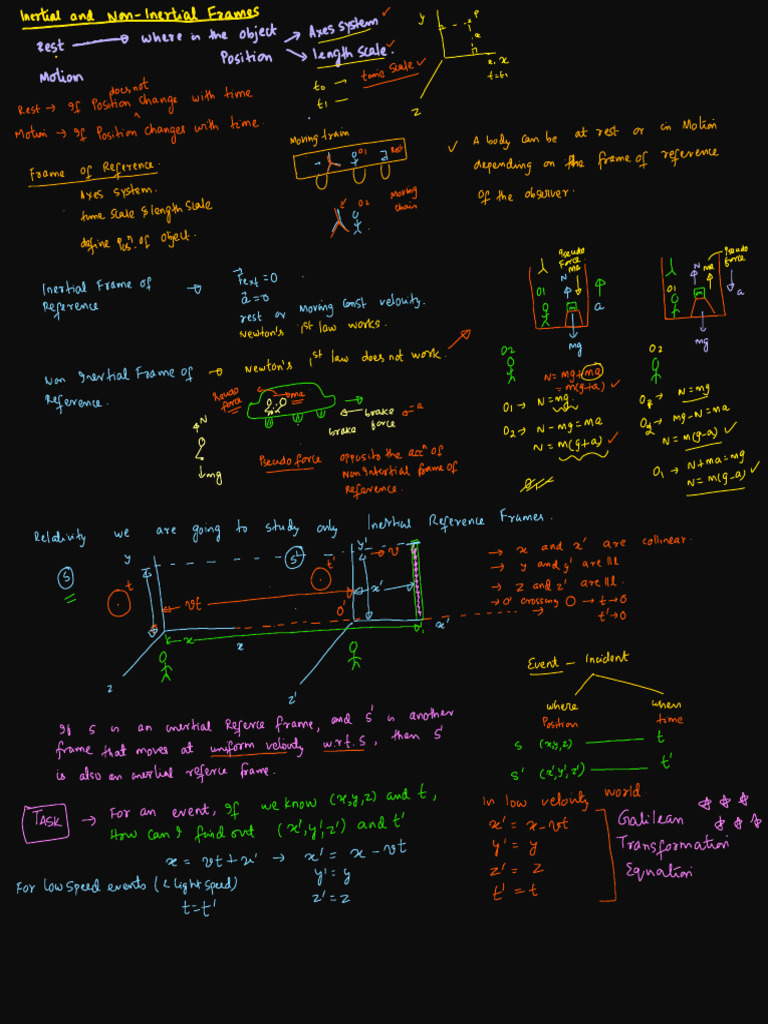 Inertial and Non-Inertial Frames
Rest → where in the object Position → Axes system ✓
→ length scale ✓
Motion
Rest → If Position does not Change with time
Motion → If Position Changes with time.
t₀ — time scale ✓
t₁ —
y
P
x
z
t=t₁
Frame of Reference.
Axes system.
time scale & length scale
define Posⁿ. of object.
Moving train
O1
Rest
O2
Moving
✓ A body can be at rest or in Motion
depending on the frame of reference
of the observer.
Inertial Frame of
Reference
→ F⃗ext = 0
a⃗ = 0
rest or Moving const velocity.
Newton's 1st law works.
Non Inertial Frame of
Reference.
→ Newton's 1st law does not work.
Pseudo
force
ma
brake
force
← brake
force
-a
N
mg
Pseudo force opposite to the accⁿ of
Non Inertial frame of
Reference.
Pseudo
Force
ma
N
O1
a
mg
O2
N = mg + ma
= m(g+a) ✓
O1 → N = mg
O2 → N - mg = ma
N = m(g+a) ✓
Pseudo
force
N
ma
O1
a
mg
O2
N = mg
mg - N = ma
N = m(g-a) ✓
O1 → N + ma = mg
N = m(g-a) ✓
Relativity we are going to study only Inertial Reference Frames.
S
t
y
vt
x
x
z
S'
t'
y'
→ v
x'
O'
x'
z'
→ x and x' are collinear.
→ y and y' are lll
→ z and z' are lll.
→ O' crossing O → t→0
t'→0
Event - Incident
where
Position
when
time
S (x,y,z) ——— t
S' (x',y',z') ——— t'
If S is an inertial Referce frame, and S' is another
frame that moves at uniform velocity w.r.t. S, then S'
is also an inertial referce frame.
TASK → For an event, If we know (x,y,z) and t,
How can I find out (x',y',z') and t'
x = vt + x' → x' = x - vt
y' = y
z' = z
For low speed events (< light speed)
t = t'
In low velocity world.
x' = x - vt
y' = y
z' = z
t' = t
Galilean
Transformation
Equation